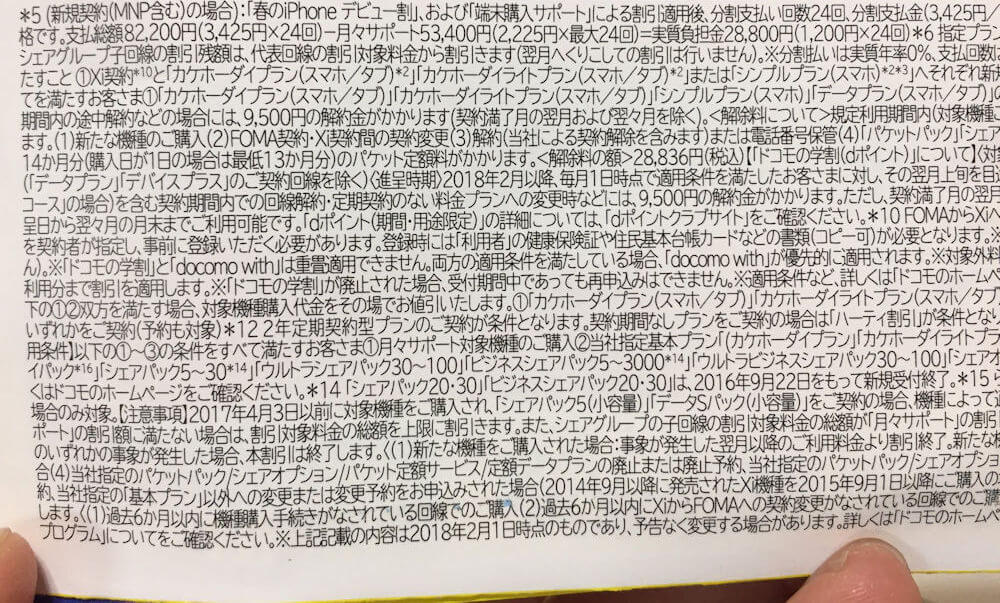 *5 (新規契約(MNP含む)の場合):「春のiPhone デビュー割」、および「端末購入サポート」による割引適用後、分割支払い回数24回、分割支払金(3,425円/
格です。支払総額82,200円(3,425円×24回)−月々サポート53,400円(2,225円×最大24回)=実質負担金28,800円(1,200円×24回)*6 指定プラン
シェアグループ子回線の割引残額は、代表回線の割引対象料金から割引きます(翌月へくりこしての割引は行いません)。※分割払いは実質年率0%、支払回数に
たすこと ①Xi契約*10と「カケホーダイプラン(スマホ/タブ)*2」「カケホーダイライトプラン(スマホ/タブ)*2」または「シンプルプラン(スマホ)*2*3」へそれぞれ新
てを満たすお客さま①「カケホーダイプラン(スマホ/タブ)」「カケホーダイライトプラン(スマホ/タブ)」「シンプルプラン(スマホ)」「データプラン(スマホ/タブ)」の
期間内の途中解約などの場合には、9,500円の解約金がかかります(契約満了月の翌月および翌々月を除く)。<解除料について>規定利用期間内(対象機種ご
ます。(1)新たな機種のご購入(2)FOMA契約・Xi契約間の契約変更(3)解約(当社による契約解除を含みます)または電話番号保管(4)「パケットパック」「シェア
14か月分(購入日が1日の場合は最低13か月分)のパケット定額料がかかります。<解除料の額>28,836円(税込)【「ドコモの学割(dポイント)」について】〈対
(「データプラン」「デバイスプラス」のご契約回線を除く)〈進呈時期〉2018年2月以降、毎月1日時点で適用条件を満たしたお客さまに対し、その翌月上旬を目途
コース」の場合)を含む契約期間内での回線解約・定期契約のない料金プランへの変更時などには、9,500円の解約金がかかります。ただし、契約満了月の翌月
呈日から翌々月の月末までご利用可能です。「dポイント(期間・用途限定)」の詳細については、「dポイントクラブサイト」をご確認ください。*10 FOMAからXiへ
を契約者が指定し、事前に登録いただく必要があります。登録時には「利用者」の健康保険証や住民基本台帳カードなどの書類(コピー可)が必要となります。※
ん)。※「ドコモの学割」と「docomo with」は重畳適用できません。両方の適用条件を満たしている場合、「docomo with」が優先的に適用されます。※対象外料
利用分まで割引を適用します。※「ドコモの学割」が廃止された場合、受付期間中であっても再申込みはできません。※適用条件など、詳しくは「ドコモのホームペ
下の①②双方を満たす場合、対象機種購入代金をその場でお値引いたします。①「カケホーダイプラン(スマホ/タブ)」「カケホーダイライトプラン(スマホ/タブ)
いずれかをご契約(予約も対象)*12 2年定期契約型プランのご契約が条件となります。契約期間なしプランをご契約の場合は「ハーティ割引」が条件となり
用条件】以下の①〜③の条件をすべて満たすお客さま①月々サポート対象機種のご購入②当社指定基本プラン(「カケホーダイプラン」「カケホーダイライトプラン
イパック*16」「シェアパック5〜30*14」「ウルトラシェアパック30〜100」「ビジネスシェアパック5〜3000*14」「ウルトラビジネスシェアパック30〜100」「シェアオ
くはドコモのホームページをご確認ください。*14 「シェアパック20・30」「ビジネスシェアパック20・30」は、2016年9月22日をもって新規受付終了。*15
場合のみ対象。【注意事項】2017年4月3日以前に対象機種をご購入され、「シェアパック5(小容量)」「データSパック(小容量)」をご契約の場合、機種によって
ポート」の割引額に満たない場合は、割引対象料金の総額を上限に割引きます。また、シェアグループの子回線の割引対象料金の総額が「月々サポート」の割引
のいずれかの事象が発生した場合、本割引は終了します。〈(1)新たな機種をご購入された場合:事象が発生した翌月以降のご利用料金より割引終了。新たな機
合(4)当社指定のパケットパック/シェアオプション/パケット定額サービス/定額データプランの廃止または廃止予約、当社指定のパケットパック/シェアオプション
約、当社指定の「基本プラン」以外への変更または変更予約をお申込みされた場合(2014年9月以降に発売されたXi機種を2015年9月1日以降にご購入の
します。〈(1)過去6か月以内に機種購入手続きがなされている回線でのご購入(2)過去6か月以内にXiからFOMAへの契約変更がなされている回線でのご購
プログラム」についてをご確認ください。※上記記載の内容は2018年2月1日時点のものであり、予告なく変更する場合があります。詳しくは「ドコモのホームペ